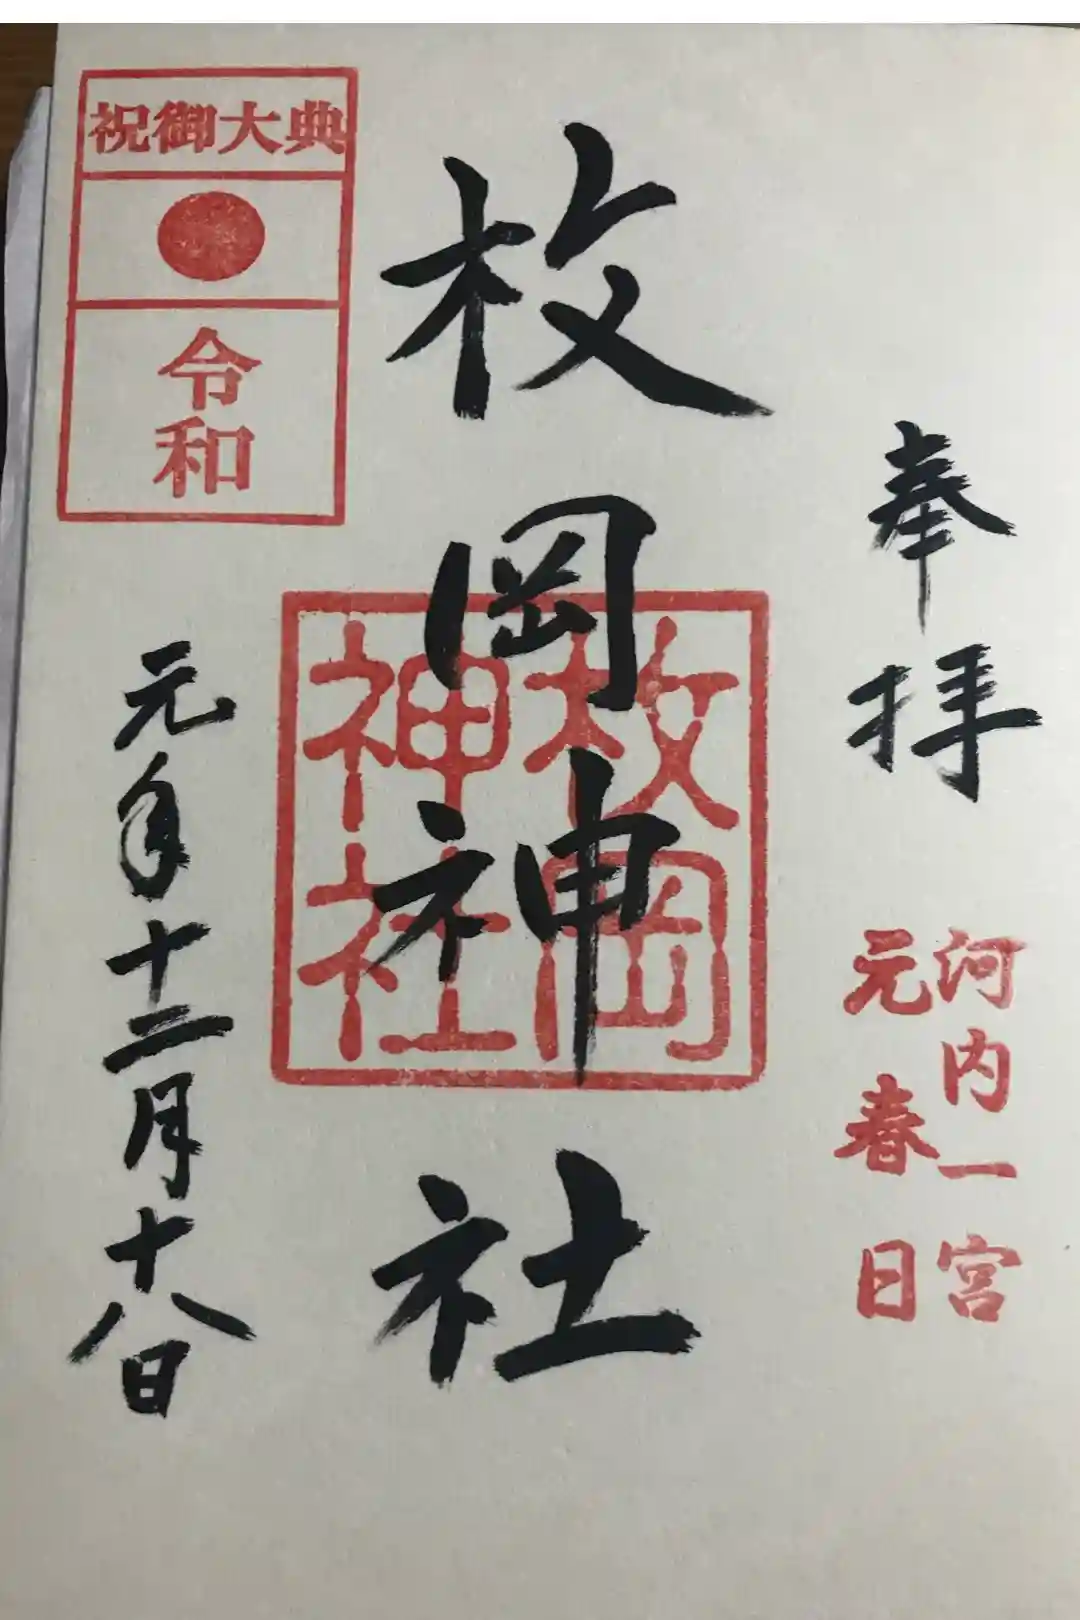 奉拝
河内一宮
元春日
枚岡神社
枚岡
神社
祝御大典
令和
元年十二月十八日